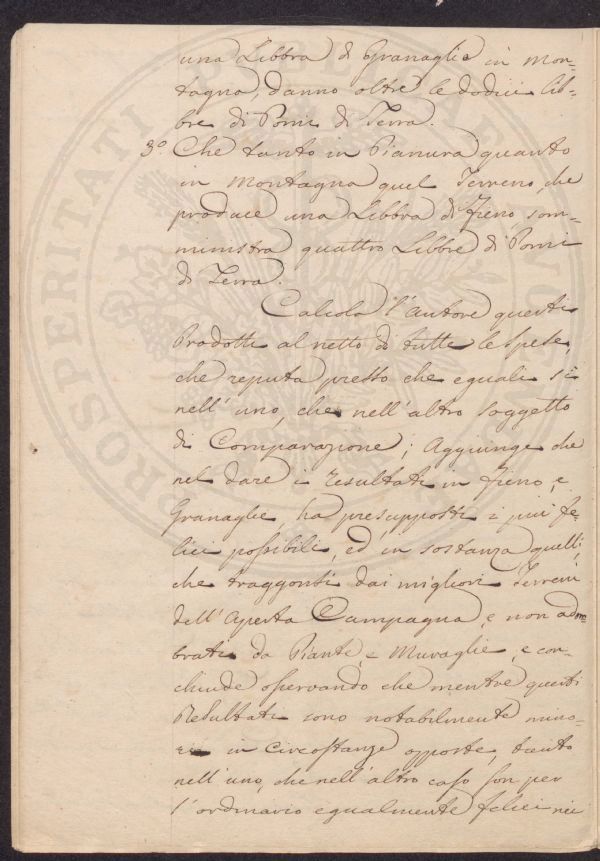 una Libbra di Granaglie in Mon=
tagna, danno oltre le dodici Lib=
bre di Pomi di Terra.
3.° Che tanto in Pianura quanto
in Montagna quel Terreno, che
produce una Libbra di Fieno, som=
ministra quattro Libbre di Pomi
di Terra.
Calcola l'autore questi
Prodotti al netto di tutte le spese,
che reputa presso che eguali sì
nell'uno, che nell'altro soggetto
di Comparazione; Aggiunge che
nel dare i resultati in Fieno, e
Granaglie, ha presupposti i più fe=
lici possibili, ed in sostanza quelli,
che traggonsi dai migliori Terreni
dell'aperta Campagna, e non adom=
brati da Piante, e Muraglie, e con=
chiude osservando che mentre questi
Resultati sono notabilmente mino=
ri in circostanze opposte, tanto
nell'uno, che nell'altro caso son per
l'ordinario egualmente felici nei
PROSPERITATI PUBLICAE